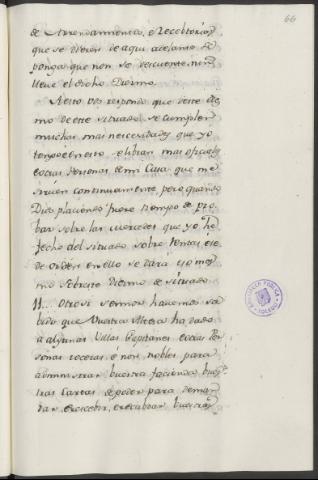 66
de Arrendamientos, e Recebtorias
que se dieren de aqui adelante se
ponga que non se descuente nin
lleve el dicho Diezmo.
A esto vos respondo que deste diez
mo de este situado se cumplen
muchas mas necesidades que yo
tengo e libran mas oficiales
e otras Personas de mi Casa que me
sirven continuamente pero quando
Dios placiendo fuere tiempo de pro
bar sobre las mercedes que yo he
fecho del situado sobre rentas e se
de orden en ello se dara eso mes
mo sobre este Diezmo de situado
11.. Otrosi señor havemos sa
bido que Vuestra Alteza ha dado
a algunas Villas Capitanes e otras Per
sonas non nobles para
administrar vuestra facienda vues
tras Cartas de poder para deman
dar, e recebir, e recabdar vuestras
BIBLIOTECA PUBLICA
TOLEDO